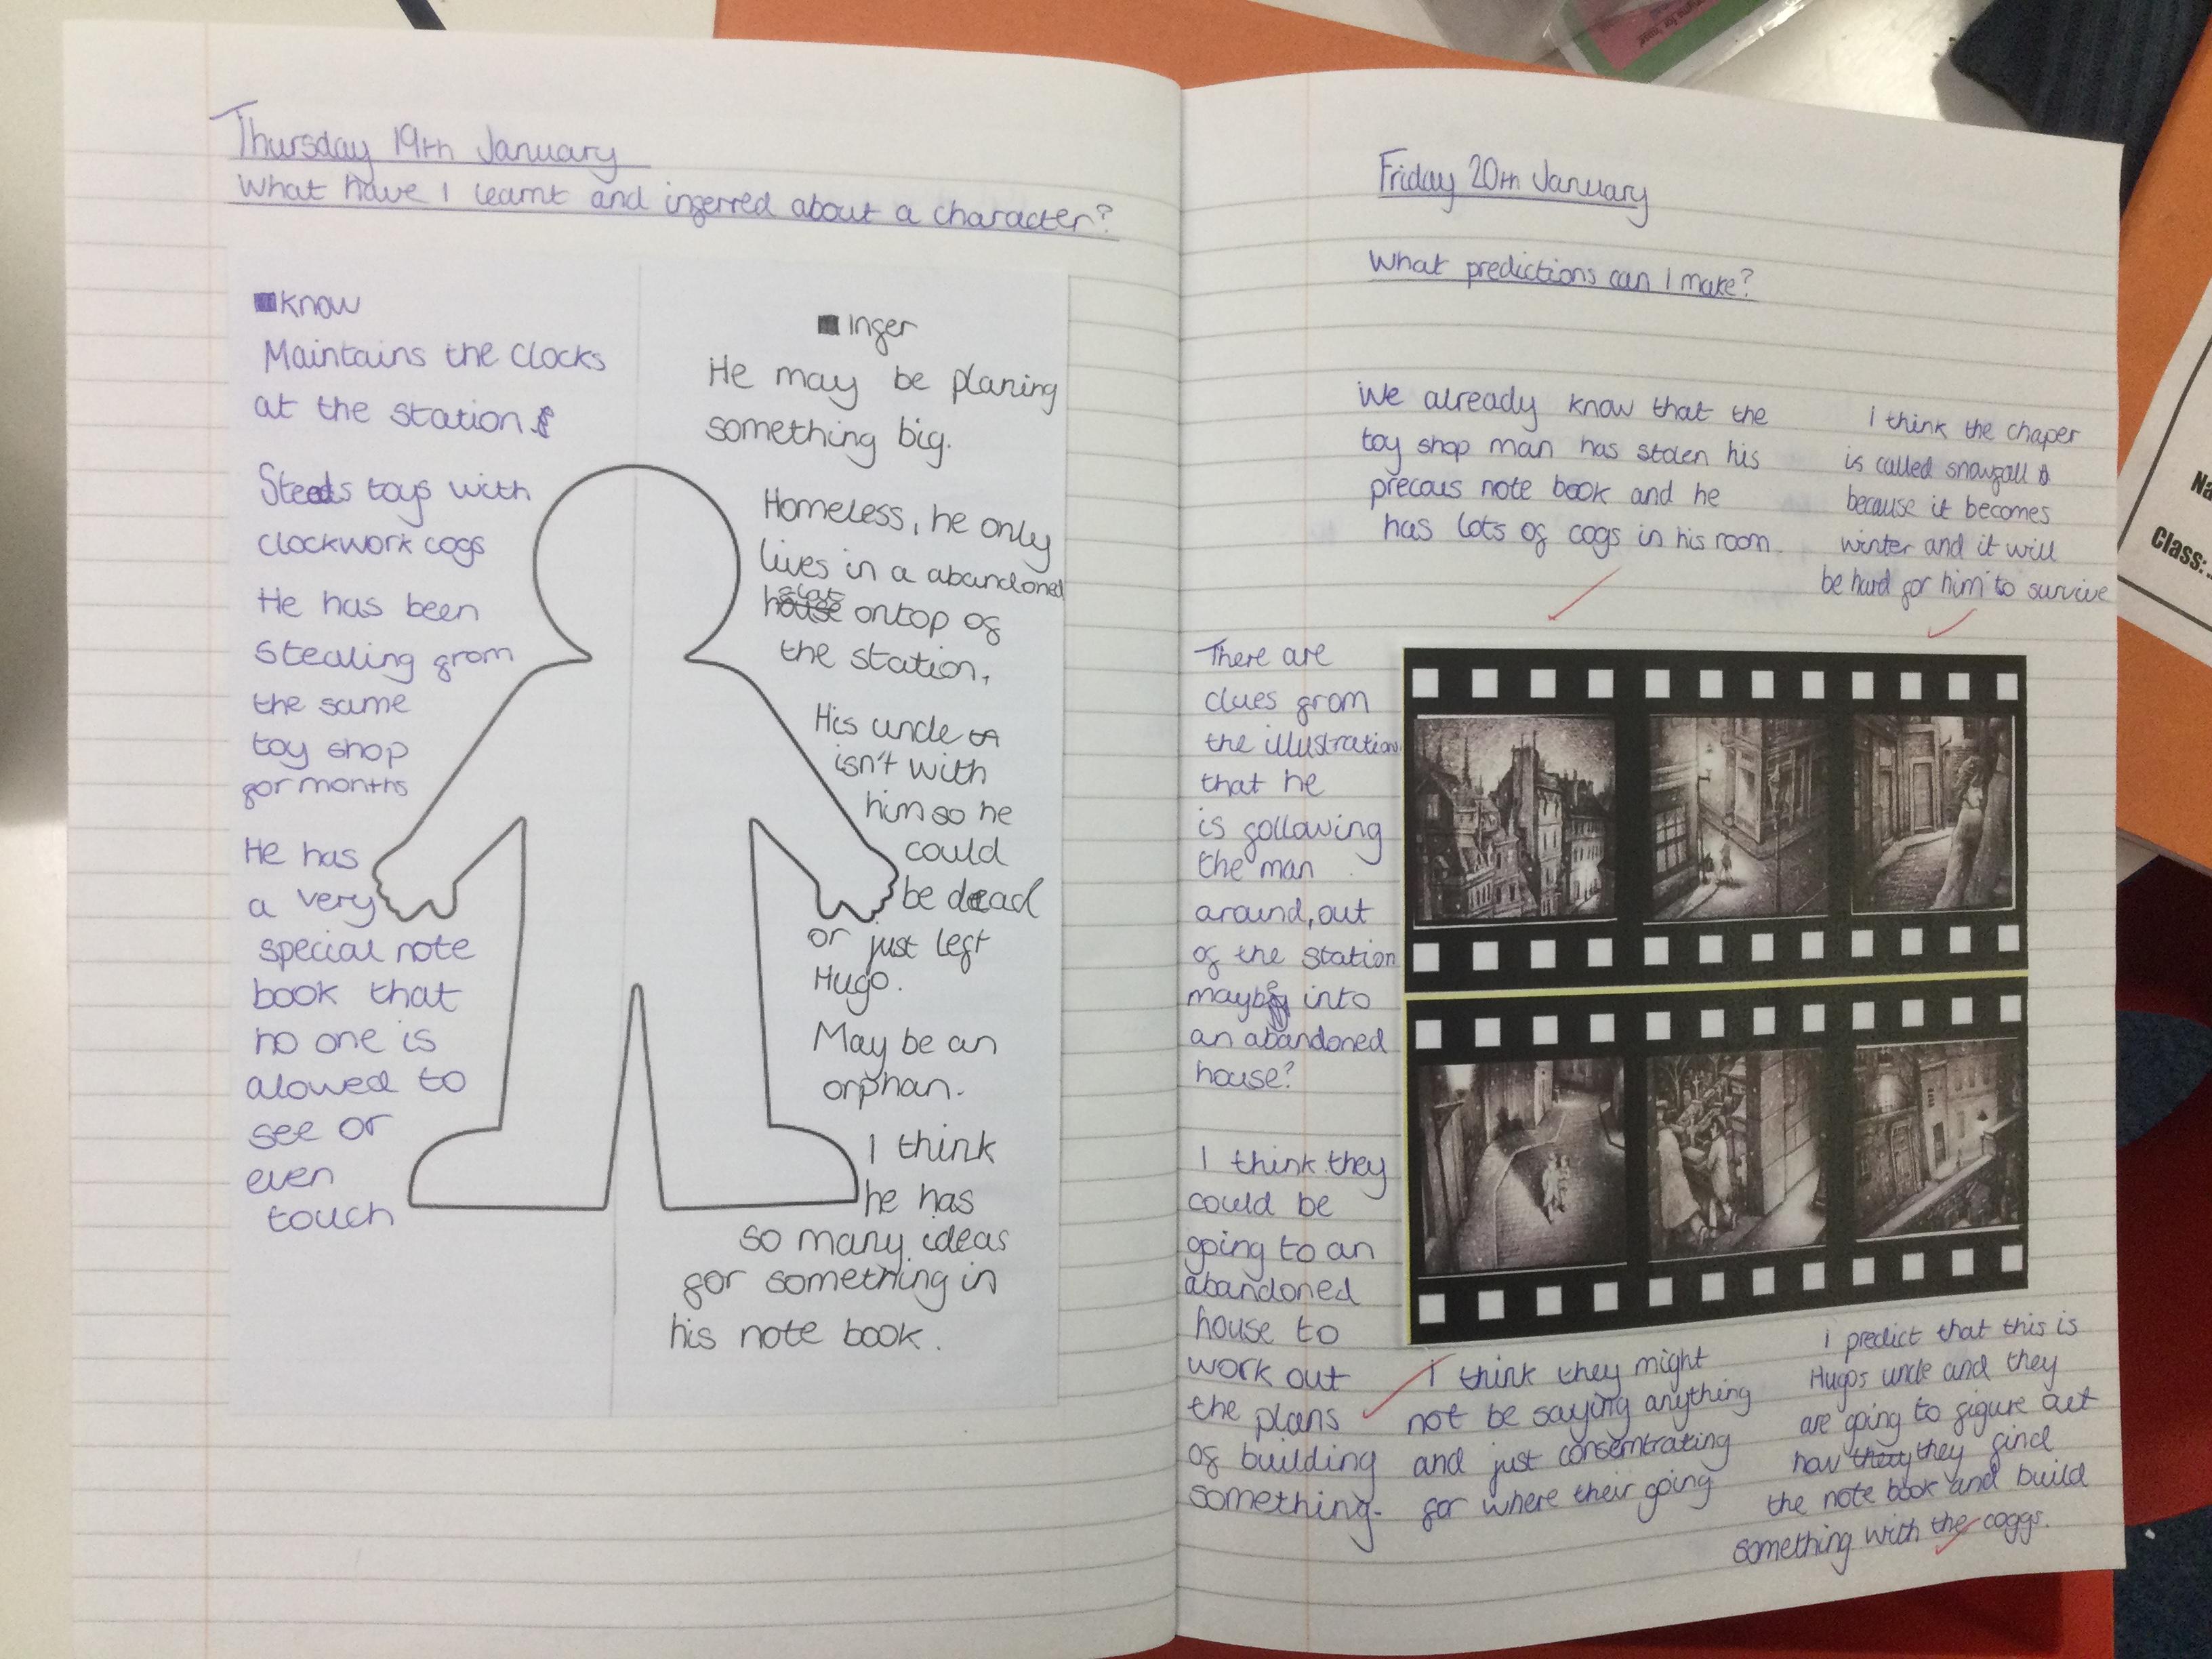 Thursday 19th January
What have I learnt and inferred about a character?
know
Maintains the clocks
at the station
Steals toys with
clockwork cogs
He has been
stealing from
the same
toy shop
for months
He has
a very
special note
book that
no one is
alowed to
see or
even
touch
Infer
He may be planing
something big.
Homeless, he only
lives in a abandoned
flat
house ontop of
the station.
His uncle
isn't with
him so he
could
be dead
or just left
Hugo.
May be an
orphan.
I think
he has
so many ideas
for something in
his note book.
Friday 20th January
What predictions can I make?
We already know that the
toy shop man has stolen his
precous note book and he
has lots of cogs in his room.
I think the chaper
is called snowfall
because it becomes
winter and it will
be hard for him to survive
There are
clues from
the illustrations
that he
is following
the man
around, out
of the station
maybe into
an abandoned
house?
I think they
could be
going to an
abandoned
house to
work out
the plans
of building
something.
I think they might
not be saying anything
and just consentrating
for where their going
I predict that this is
Hugos uncle and they
are going to figure out
how they they find
the note book and build
something with the coggs.
Na
Class: